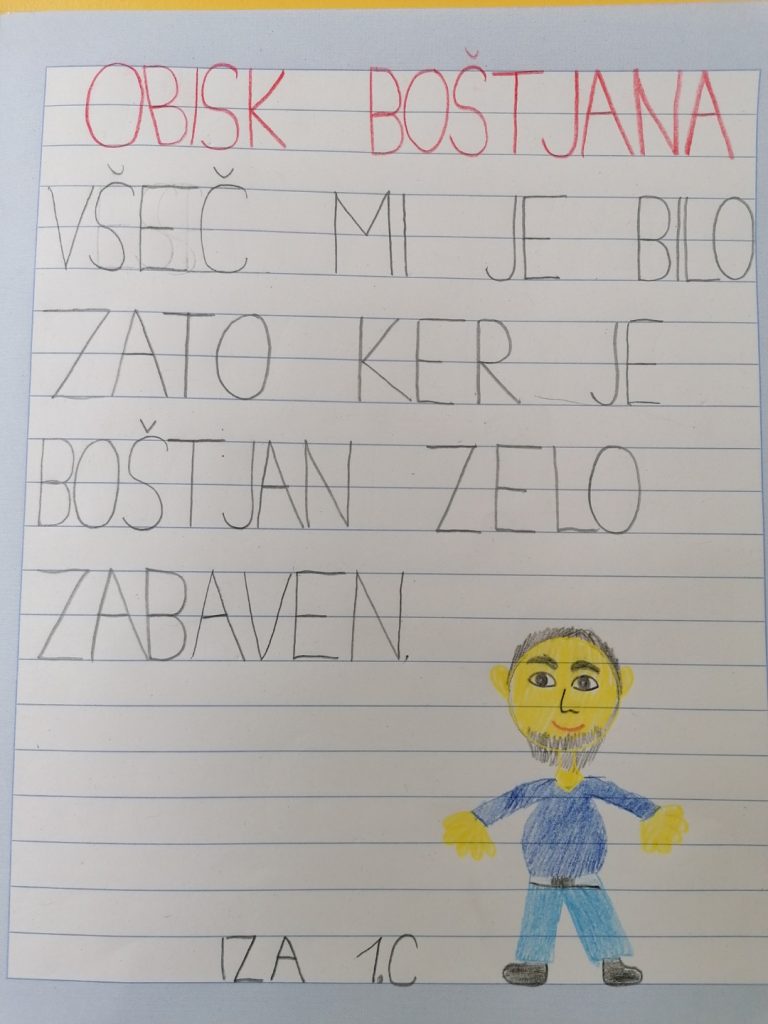 OBISK BOŠTJANA
VŠEČ MI JE BILO
ZATO KER JE
BOŠTJAN ZELO
ZABAVEN.
IZA 1.C